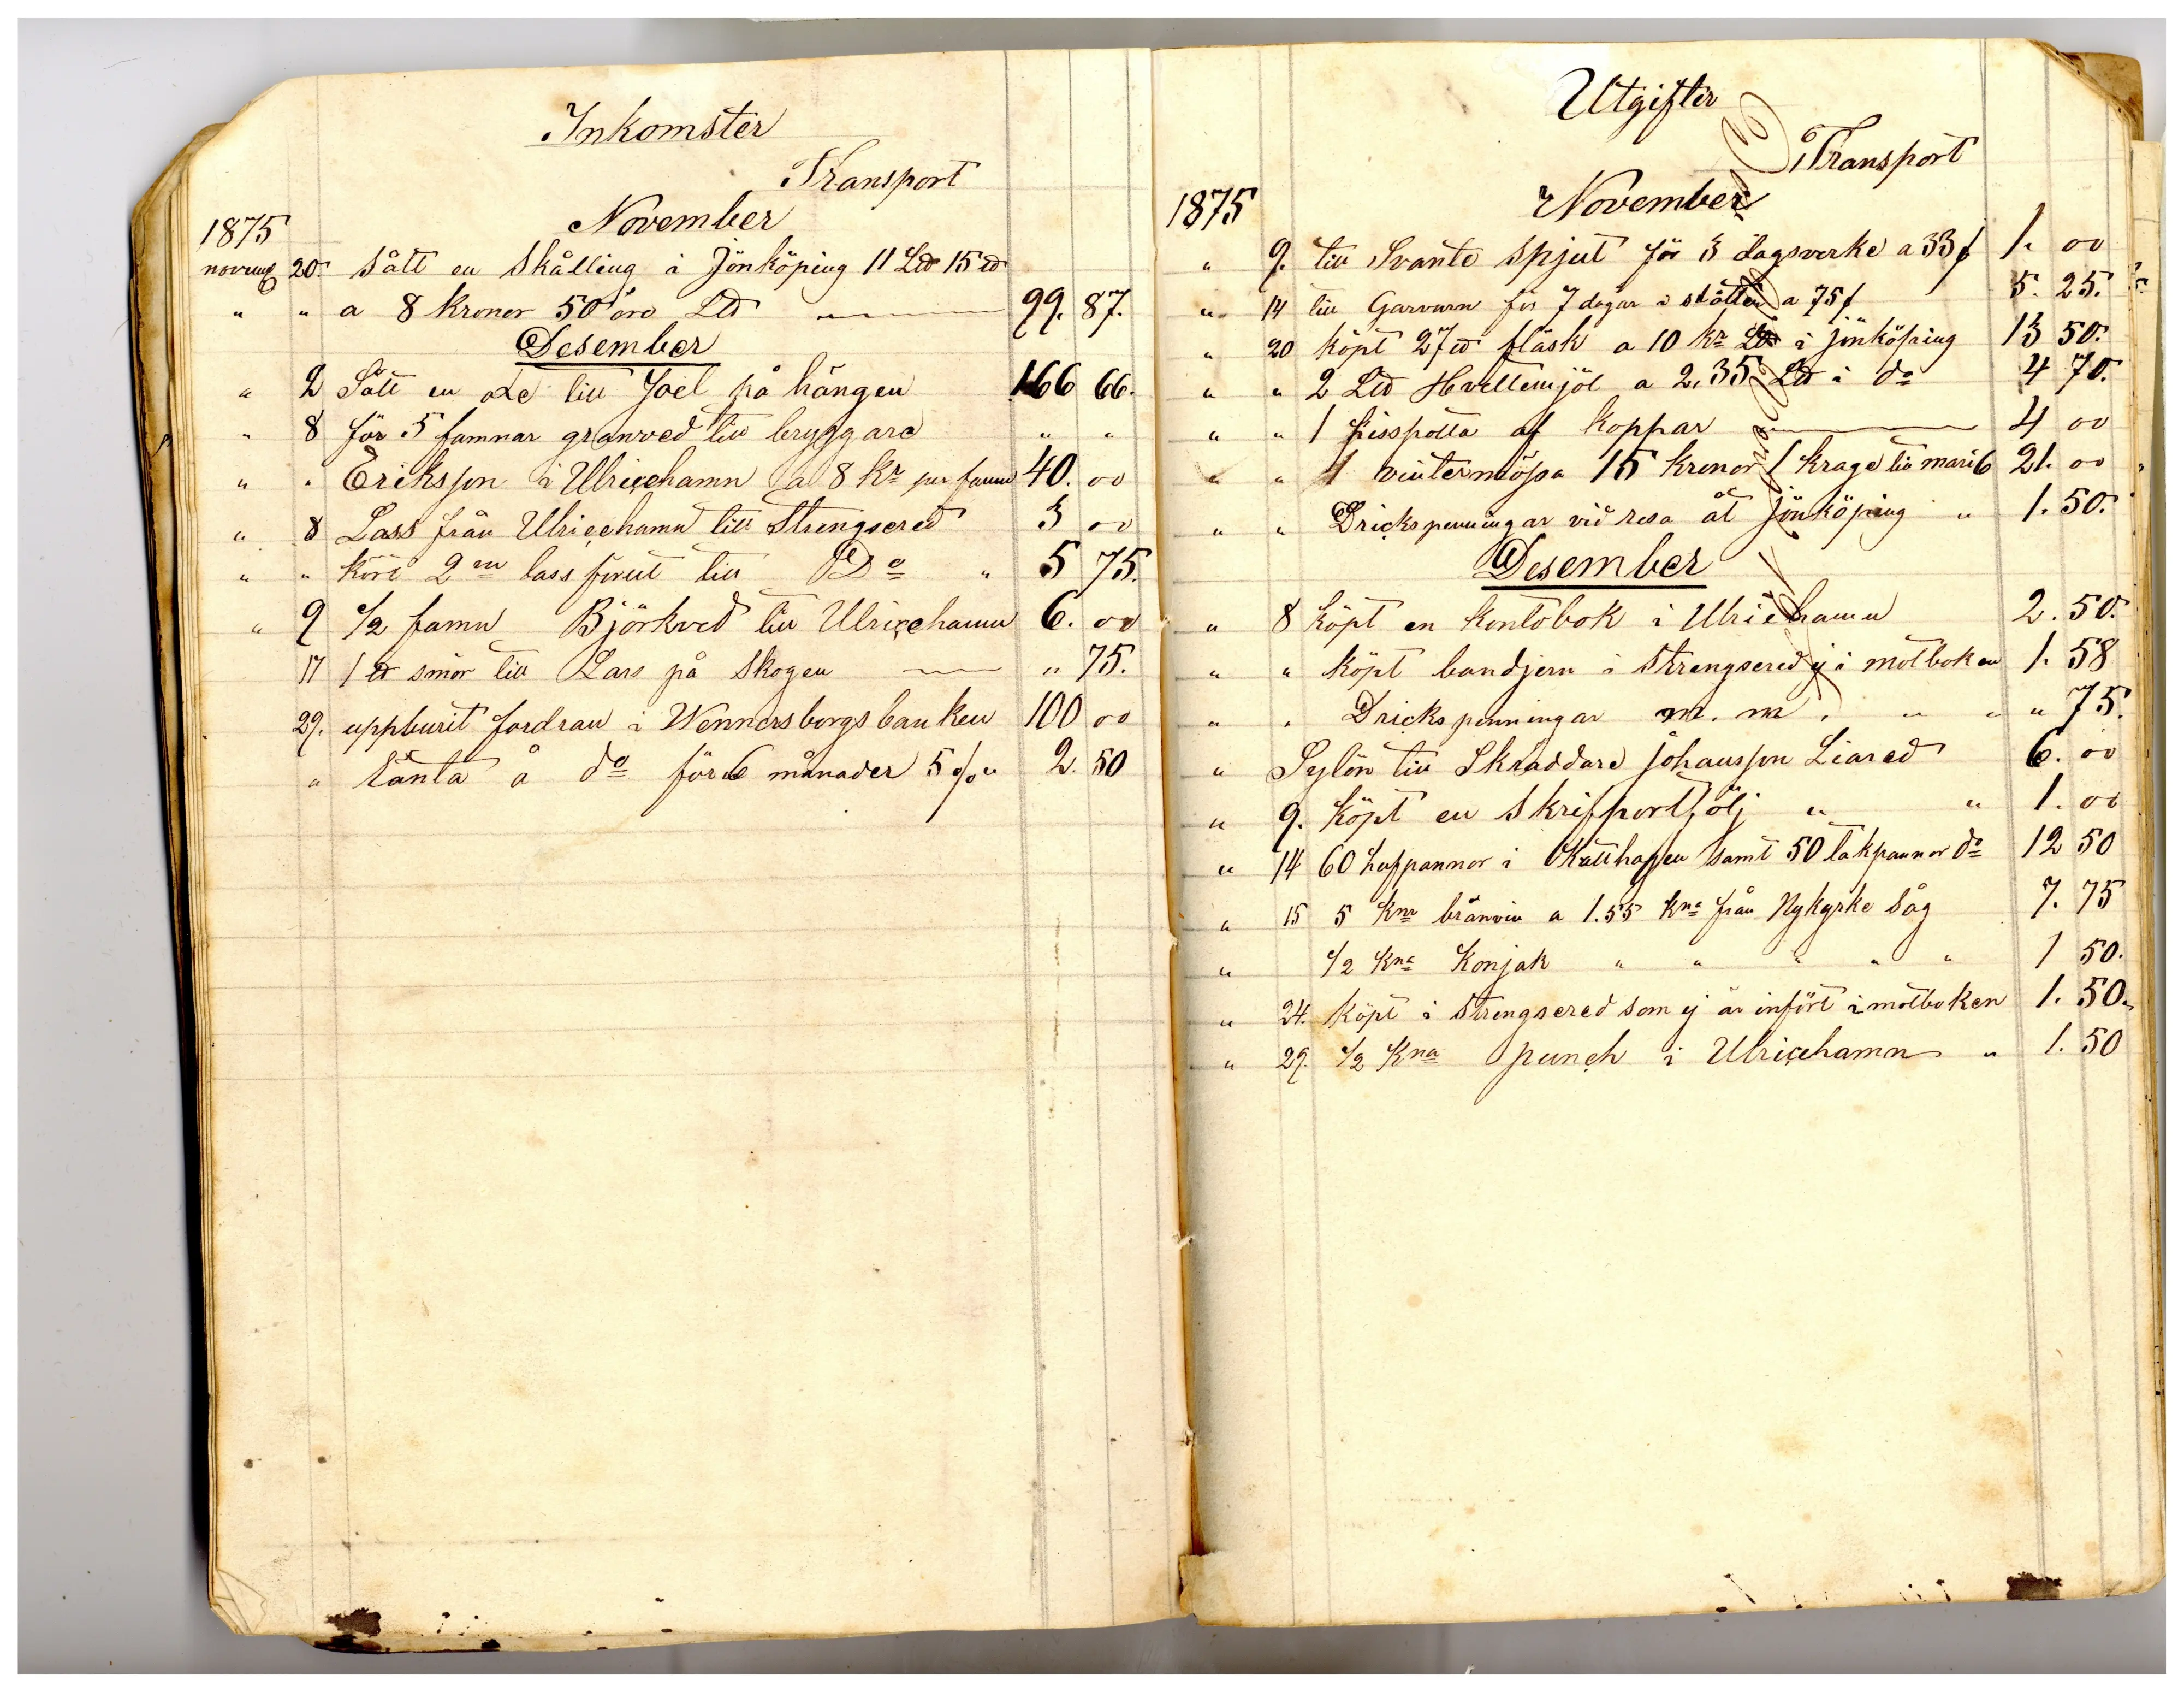 Inkomster
Transport
1875 November
novemb 20. Sålt en Skålling i Jönköping 11 Ltb 15 tb
" " a 8 kronor 50 öre Ltb 99. 87.
Desember
" 2 Sålt en till Joel på hängen 166 66.
" 8 för 5 famnar granved till bryggare " "
" " Eriksson i Ulricehamn a 8 Kr per famn 40. 00
" 8 Lass från Ulricehamn till Strengsered 3 00
" " kört 2ne lass förut till Do " 5 75.
" 9 1/2 famn Björkved till Ulricehamn 6. 00
17 1 tb smör till Lars på Skogen " 75.
29. uppburit fordran i Wennersborgs banken 100 00
" Ränta å do för 6 månader 5 % " 2. 50
Utgifter
Transport
1875 November
" 9. till Svante Spjut för 3 dagsverke a 33 f 1. 00
" 14 till Garvarn för 7 dagar i slåtten a 75 f 5. 25.
" 20 köpt 27 tb fläsk a 10 kr Ltb i jönköping 13 50.
" " 2 Ltb Hvettemjöl a 2,35 Ltb i do 4 70.
" " 1 Pisspotta af koppar 4 00
" " 1 vintermössa 15 kronor 1 krage till mari 6 21. 00
" " Drickspenningar vid resa åt jönköping " 1. 50.
Desember
" 8 köpt en kontobok i Ulricehamn 2. 50.
" " köpt bandjern i Strengsered ej i motboken 1. 58
" " Drickspenningar m. m. " " " 75.
" Sylön till Skräddare johansson Liared 6. 00
" 9. köpt en Skrifportfölj " " 1. 00
" 14 60 huppannor i Katthagen samt 50 takpannor do 12 50
" 15 5 Knr bränvin a 1.55 kna från Nykyrke Såg 7. 75
" 1/2 Kna Konjak " " " " " 1 50.
" 24. köpt i Strengsered som ej är infört i motboken 1. 50.
" 29. 1/2 Kna punch i Ulricehamn " 1. 50